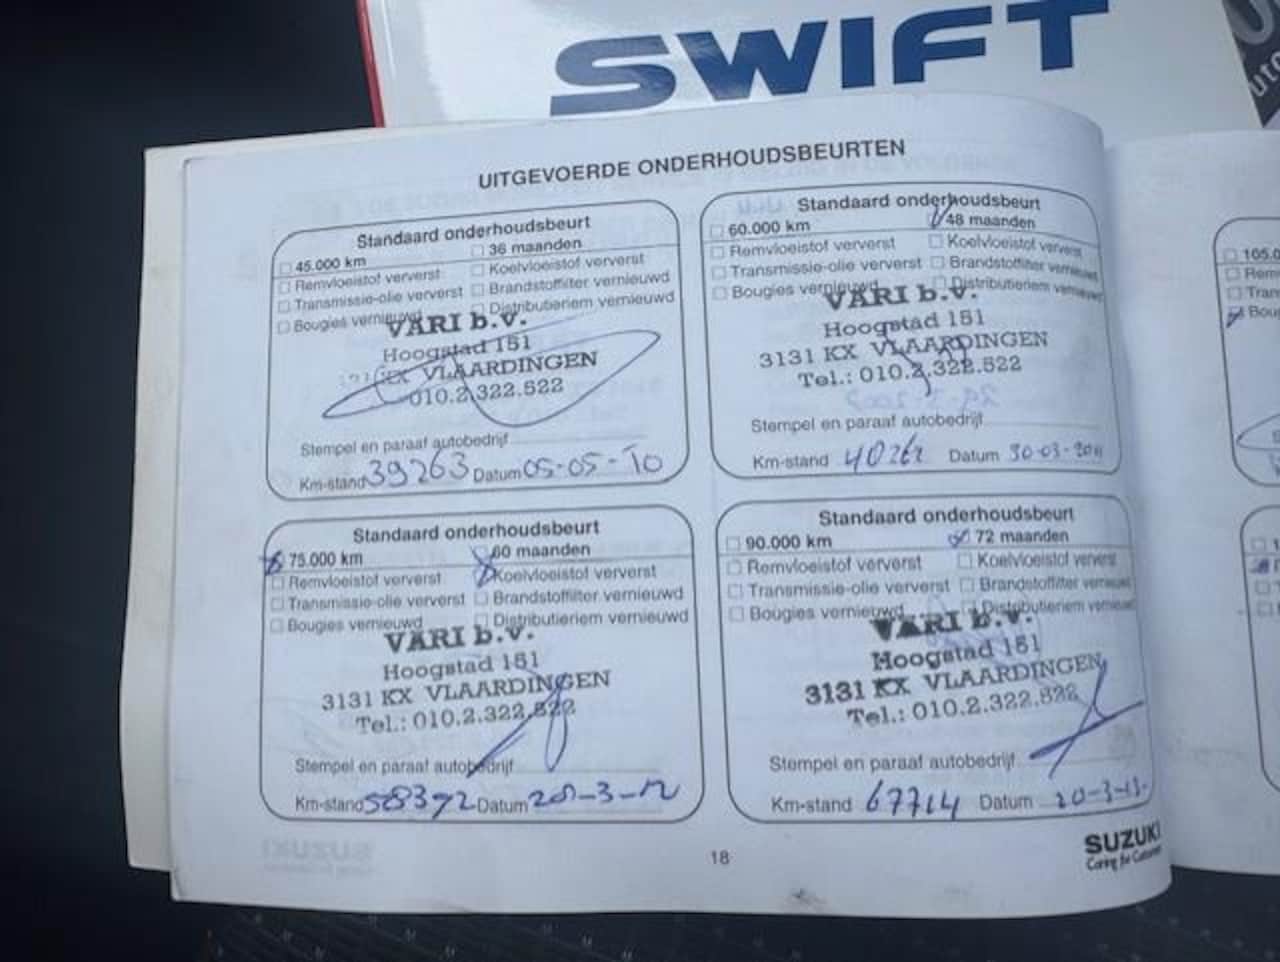 SWIFT
UITGEVOERDE ONDERHOUDSBEURTEN
Standaard onderhoudsbeurt
45.000 km 36 maanden
Remvloeistof ververst Koelvloeistof ververst
Transmissie-olie ververst Brandstoffilter vernieuwd
Bougies vernieuwd Distributieriem vernieuwd
VARI b.v.
Hoogstad 151
KX VLAARDINGEN
010.2.322.522
Stempel en paraaf autobedrijf
Km-stand 39263 Datum 05-05-10
Standaard onderhoudsbeurt
60.000 km 48 maanden
Remvloeistof ververst Koelvloeistof ververst
Transmissie-olie ververst Brandstoffilter vernieuwd
Bougies vernieuwd Distributieriem vernieuwd
VARI b.v.
Hoogstad 151
3131 KX VLAARDINGEN
Tel.: 010.2.322.522
Stempel en paraaf autobedrijf
Km-stand 40262 Datum 30-03-2011
Standaard onderhoudsbeurt
75.000 km 60 maanden
Remvloeistof ververst Koelvloeistof ververst
Transmissie-olie ververst Brandstoffilter vernieuwd
Bougies vernieuwd Distributieriem vernieuwd
VARI b.v.
Hoogstad 151
3131 KX VLAARDINGEN
Tel.: 010.2.322.522
Stempel en paraaf autobedrijf
Km-stand 58392 Datum 20-3-12
Standaard onderhoudsbeurt
90.000 km 72 maanden
Remvloeistof ververst Koelvloeistof ververst
Transmissie-olie ververst Brandstoffilter vernieuwd
Bougies vernieuwd Distributieriem vernieuwd
VARI b.v.
Hoogstad 151
3131 KX VLAARDINGEN
Tel.: 010.2.322.522
Stempel en paraaf autobedrijf
Km-stand 67714 Datum 20-3-13
18
SUZUKI
Caring for Customers
105.0
Rem
Tran
Boug